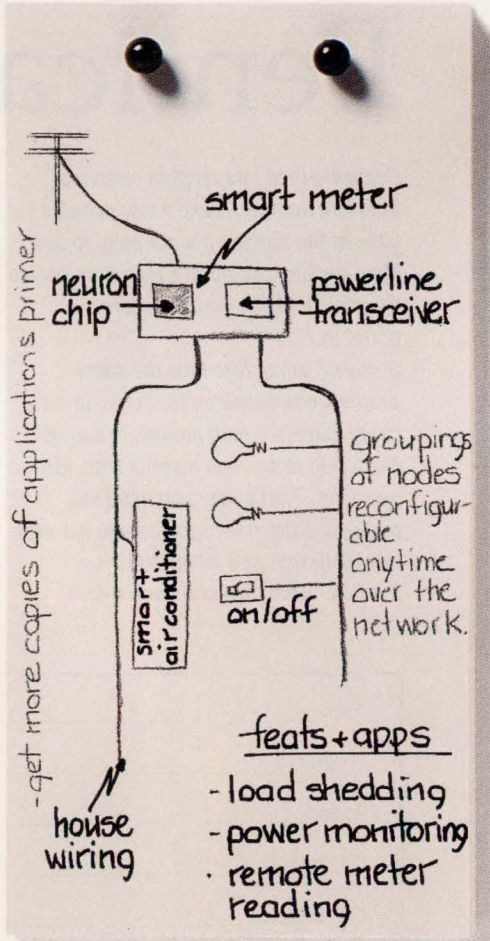 -get more copies of applications primer
smart meter
neuron
chip
powerline
transceiver
groupings
of nodes
reconfigur-
able
anytime
over the
network.
smart
air conditioner
on/off
house
wiring
feats+apps
-load shedding
-power monitoring
· remote meter
reading